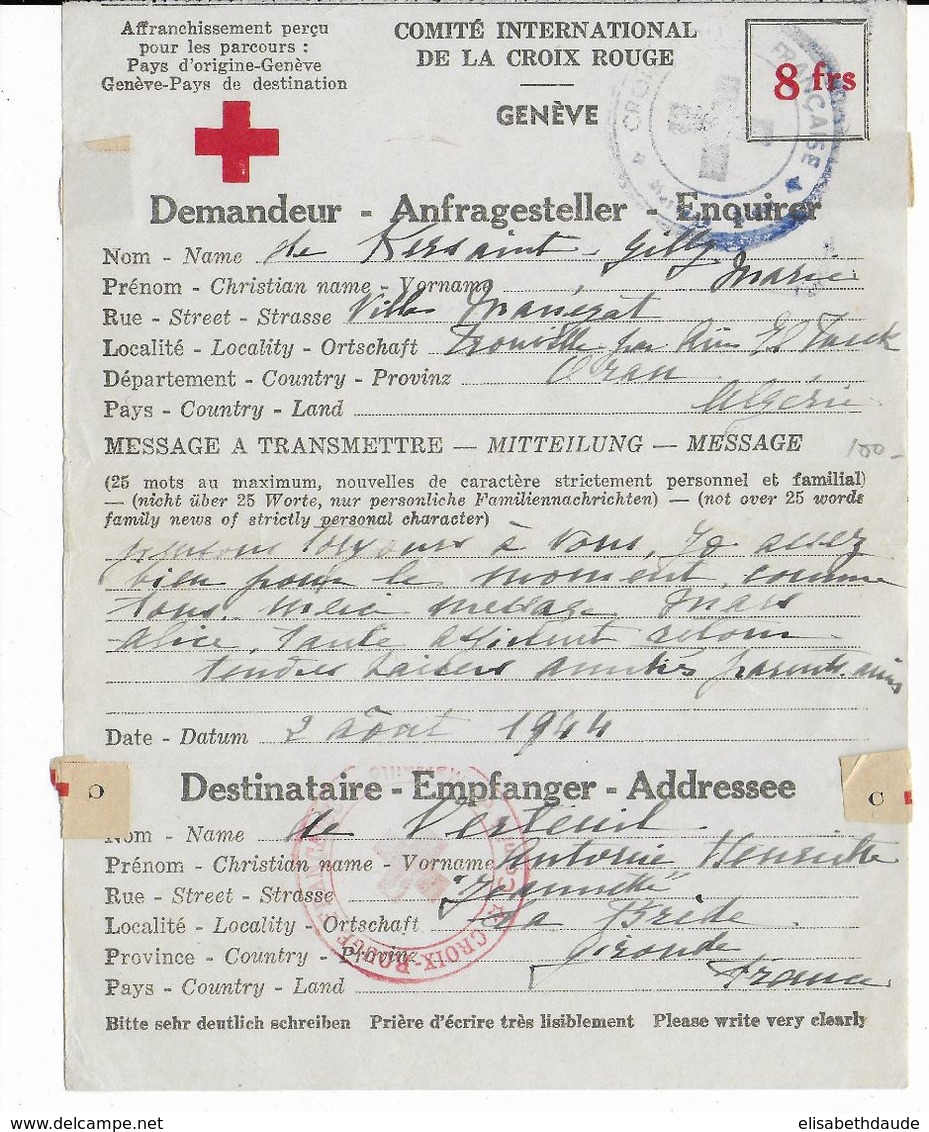 Affranchissement perçu
pour les parcours :
Pays d'origine-Genève
Genève-Pays de destination
COMITÉ INTERNATIONAL
DE LA CROIX ROUGE
GENÈVE
8 frs
CROIX FRANÇAISE
Demandeur - Anfragesteller - Enquirer
Nom - Name de Kersaint-Gilly
Prénom - Christian name - Vorname Marie
Rue - Street - Strasse Villa
Localité - Locality - Ortschaft Trouville par Ain El Turck
Département - Country - Provinz Oran
Pays - Country - Land Algérie
MESSAGE A TRANSMETTRE — MITTEILUNG — MESSAGE
100-
(25 mots au maximum, nouvelles de caractère strictement personnel et familial)
— (nicht über 25 Worte, nur personliche Familiennachrichten) — (not over 25 words
family news of strictly personal character)
pensons toujours à vous, assez
bien pour le moment, comme
tous. merci message
alice, tante
tendres baisers amitiés parents. amis
Date - Datum 2 août 1944
Destinataire - Empfanger - Addressee
Nom - Name de Verteuil
Prénom - Christian name - Vorname Antoine Henriette
Rue - Street - Strasse "Jeannette"
Localité - Locality - Ortschaft La Brède
Province - Country - Provinz Gironde
Pays - Country - Land France
CROIX-ROUGE
Bitte sehr deutlich schreiben Prière d'écrire très lisiblement Please write very clearly
C
C
elisabethdaude